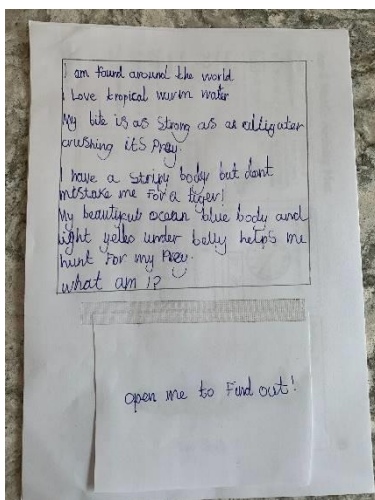 I am found around the world
I Love tropical wurm water
My bite is as strong as as alligater
crushing its Prey.
I have a stripy body but dont
mistake me For a tiger!
My beautiful ocean blue body and
light yello under belly helps me
hunt For my Prey.
what am I?
open me to Find out!